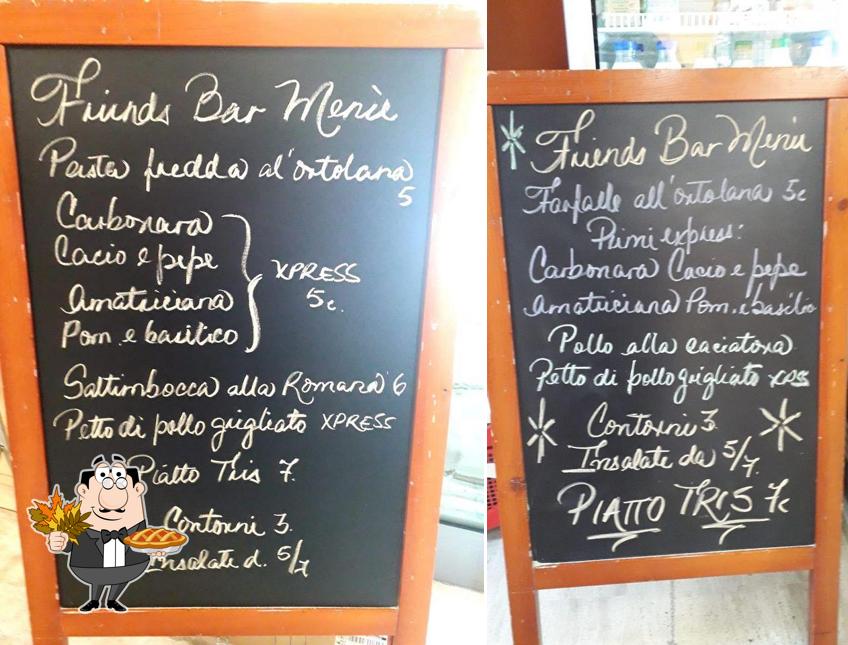 Friends Bar Menù
Pasta fredda al'ortolana
5
Carbonara
Cacio e pepe
Amatriciana
Pom. e basilico
XPRESS
5€
Saltimbocca alla Romana 6
Petto di pollo grigliato XPRESS
Piatto Tris 7.
Contorni 3.
Insalate d. 5/7
Friends Bar Menù
Farfalle all'ortolana 5€
Primi express:
Carbonara Cacio e pepe
Amatriciana Pom. e basilico
Pollo alla caciatora
Petto di pollo grigliato XPSS
Contorni 3.
Insalate da 5/7
PIATTO TRIS 7€